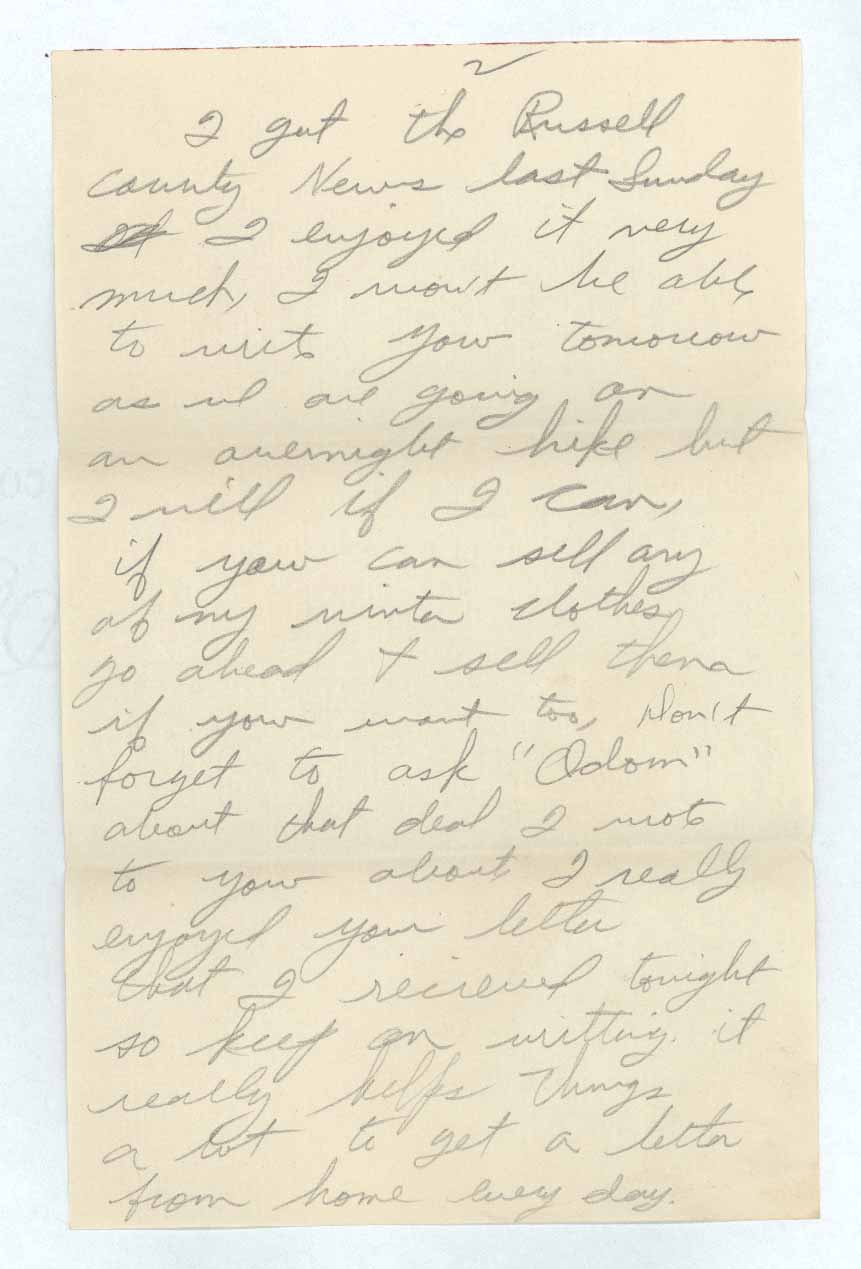 2
I got the Russell
County News last Sunday
I enjoyed it very
much, I won't be able
to write you tomorrow
as we are going on
an overnight hike but
I will if I can,
if you can sell any
of my winter clothes
go ahead + sell them
if you want too, Don't
forget to ask "Odom"
about that deal I wrote
to you about I really
enjoyed your letter
that I recieved tonight
so keep on writting. it
really helps things
a lot to get a letter
from home every day.